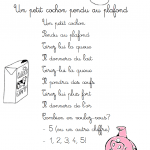 Un petit cochon pendu au plafond
Un petit cochon
Pendu au plafond
Tirez-lui la queue
Il donnera du lait
Tirez-lui la queue
Il pondra des œufs
Tirez-lui plus fort
Il donnera de l'or
Combien en voulez-vous?
- 5 (ou un autre chiffre)
- 1, 2, 3, 4, 5!